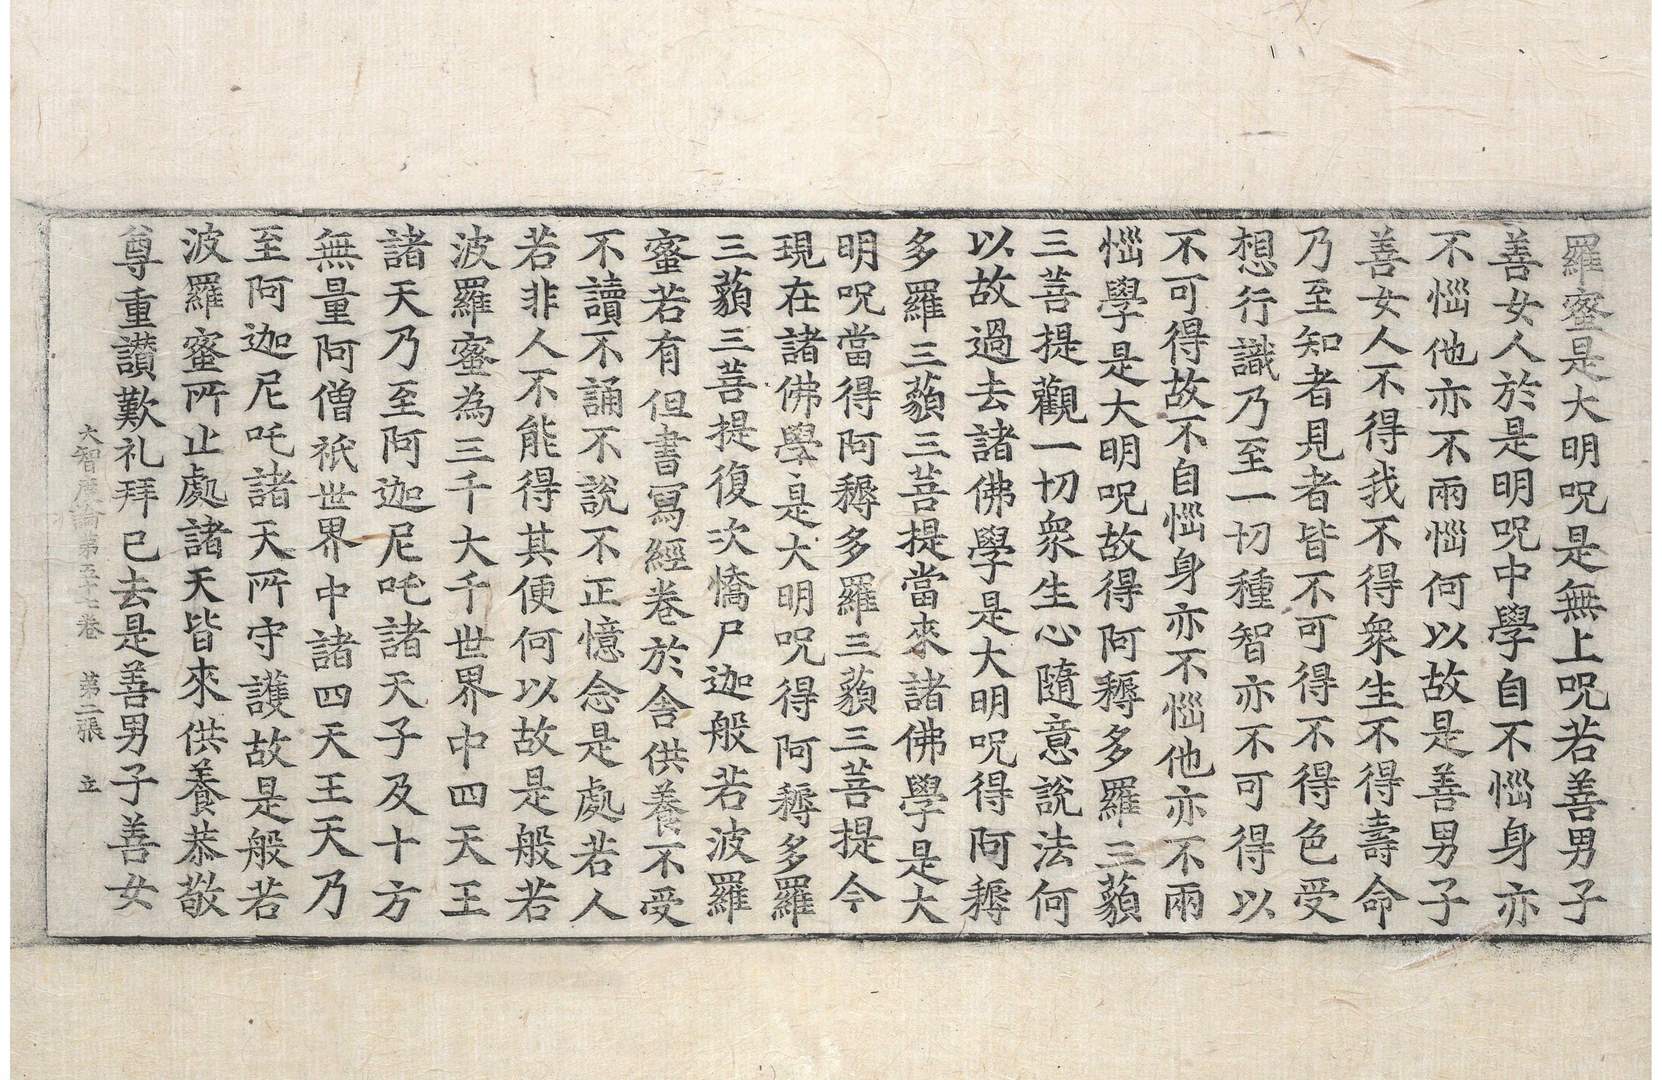 羅蜜是大明呪是無上呪若善男子
善女人於是明呪中學自不惱身亦
不惱他亦不兩惱何以故是善男子
善女人不得我不得衆生不得壽命
乃至知者見者皆不可得不得色受
想行識乃至一切種智亦不可得以
不可得故不自惱身亦不惱他亦不兩
惱學是大明呪故得阿耨多羅三藐
三菩提觀一切衆生心隨意說法何
以故過去諸佛學是大明呪得阿耨
多羅三藐三菩提當來諸佛學是大
明呪當得阿耨多羅三藐三菩提今
現在諸佛學是大明呪得阿耨多羅
三藐三菩提復次憍尸迦般若波羅
蜜若有但書寫經卷於舍供養不受
不讀不誦不說不正憶念是處若人
若非人不能得其便何以故是般若
波羅蜜為三千大千世界中四天王
諸天乃至阿迦尼吒諸天子及十方
無量阿僧祇世界中諸四天王天乃
至阿迦尼吒諸天所守護故是般若
波羅蜜所止處諸天皆來供養恭敬
尊重讃歎礼拜已去是善男子善女
大智度論第五十七卷 第二張 立